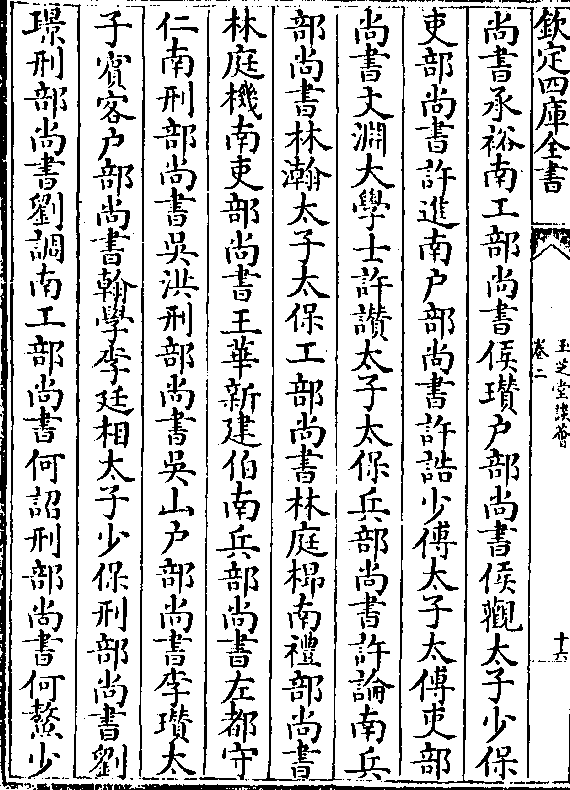 欽定四庫全書
玉芝堂談薈
卷二
十六
尚書承裕南工部尚書侯瓚户部尚書侯觀太子少保
吏部尚書許進南户部尚書許誥少傅太子太傅吏部
尚書文淵大學士許讃太子太保兵部尚書許論南兵
部尚書林瀚太子太保工部尚書林庭㭿南禮部尚書
林庭機南吏部尚書王華新建伯南兵部尚書左都守
仁南刑部尚書吳洪刑部尚書吳山户部尚書李瓚太
子賓客户部尚書翰學李廷相太子少保刑部尚書劉
璟刑部尚書劉訒南工部尚書何詔刑部尚書何鰲少